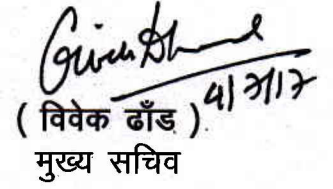 4/7/17
( विवेक ढाँड )
मुख्य सचिव